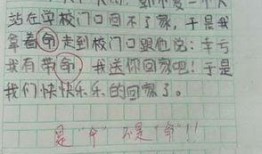 站在学校门口回不了家,于是我
拿着命走到校门口跟他说:幸亏
我有带命,我送你回家吧!于是
我们快快乐乐的回家了。
是“伞”不是“命”!!